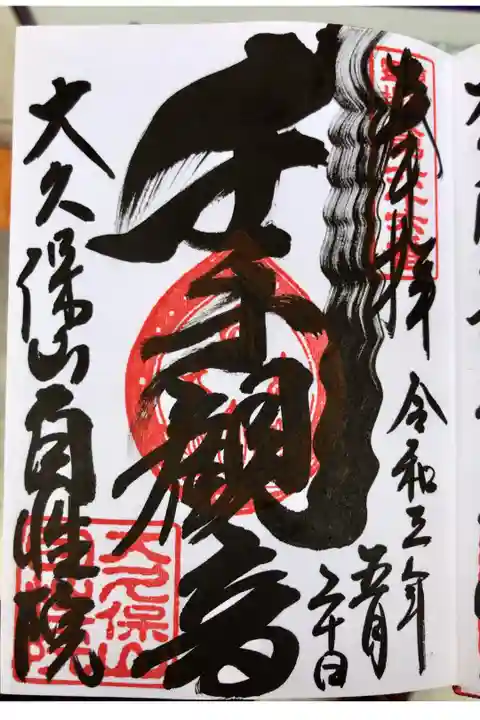 奉拝
令和三年
五月
二十日
千手観音
大久保山自性院
大久保山
自性院